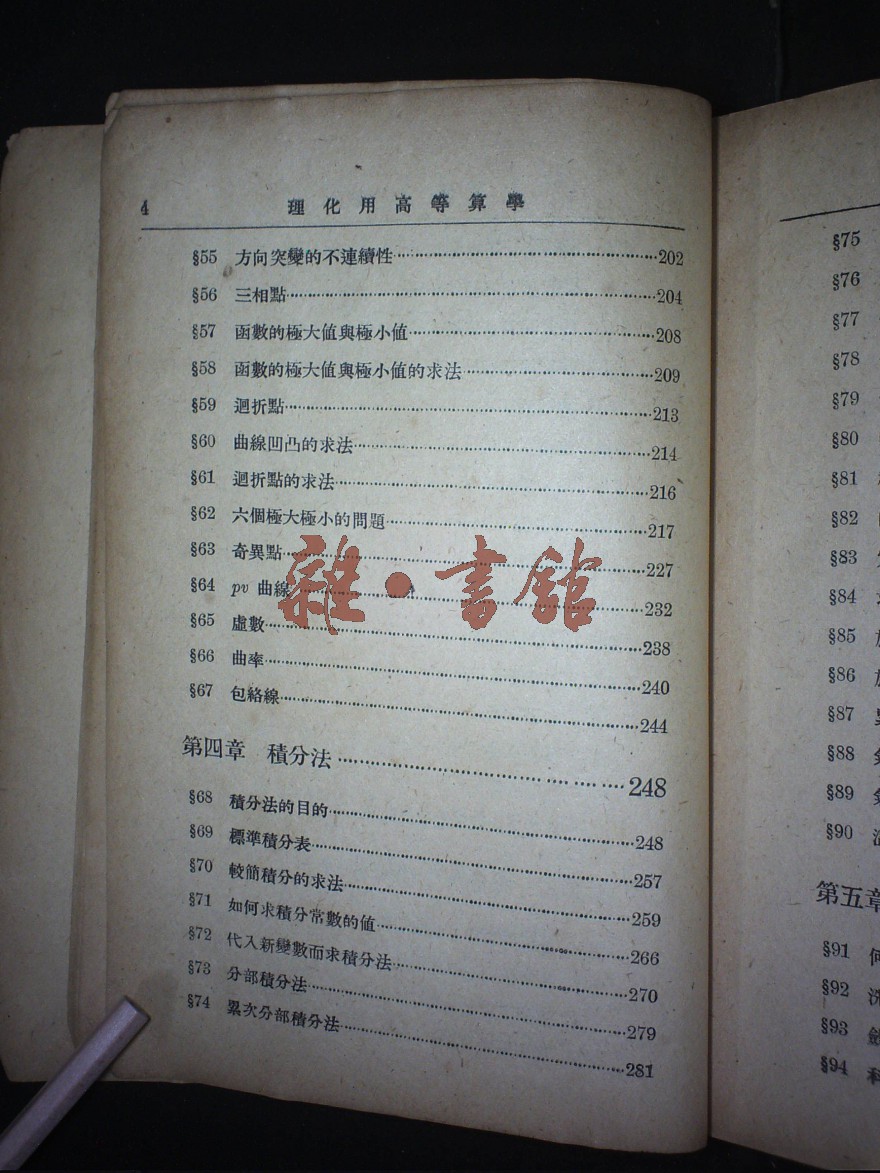 4 理化用高等算學
§55 方向突變的不連續性……202
§56 三相點……204
§57 函數的極大值與極小值……208
§58 函數的極大值與極小值的求法……209
§59 迴折點……213
§60 曲線凹凸的求法……214
§61 迴折點的求法……216
§62 六個極大極小的問題……217
§63 奇異點……227
§64 pv 曲線……232
§65 虛數……238
§66 曲率……240
§67 包絡線……244
第四章 積分法……248
§68 積分法的目的……248
§69 標準積分表……257
§70 較簡積分的求法……259
§71 如何求積分常數的值……266
§72 代入新變數而求積分法……270
§73 分部積分法……279
§74 累次分部積分法……281
雜·書館
§75
§76
§77
§78
§79
§80
§81
§82
§83
§84
§85
§86
§87
§88
§89
§90
第五章
§91 何
§92
§93
§94 科